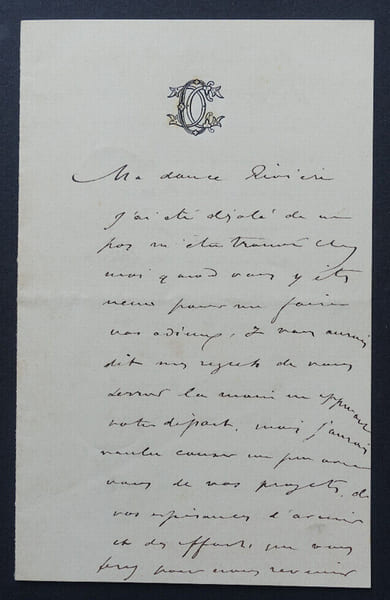 Ma douce Rivière
j'ai été désolé de ne
pas m'être trouvé chez
moi quand vous y êtes
venu pour me faire
vos adieux. Je vous aurais
dit mes regrets de vous
serrer la main en apprenant
votre départ, mais j'aurais
voulu causer un peu avec
vous de vos projets, de
vos espérances d'avenir
et des efforts que vous
ferez pour nous revenir